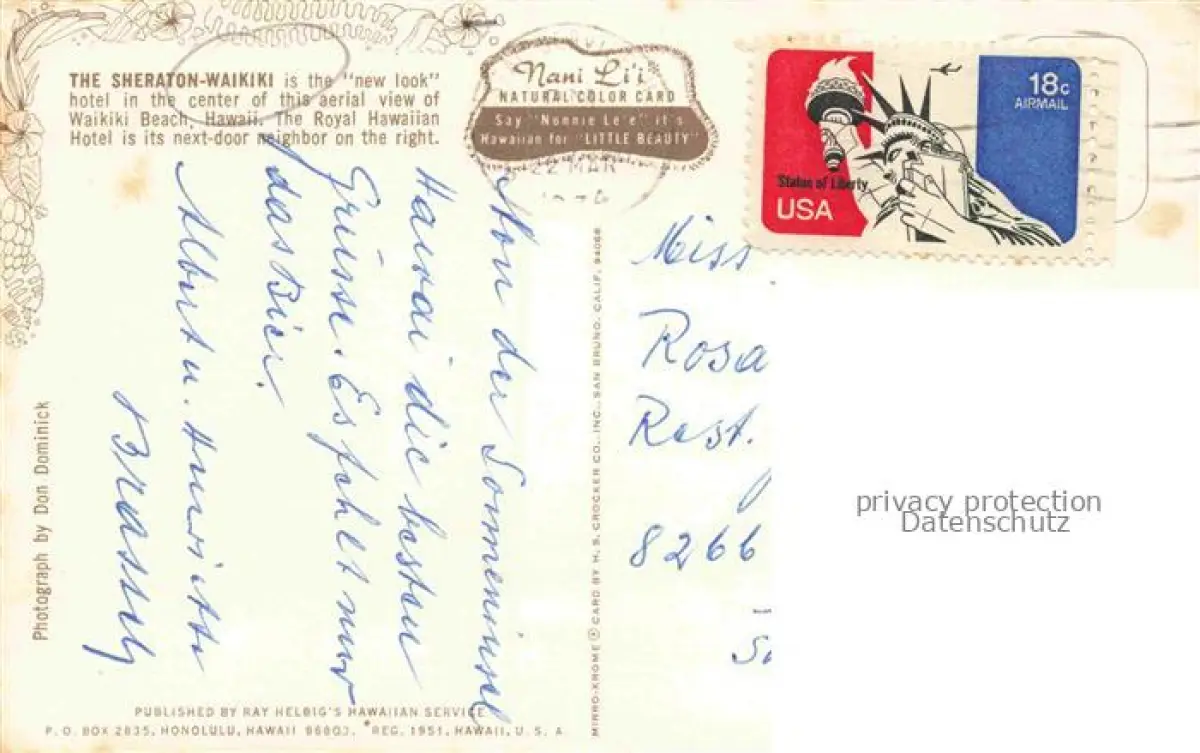 THE SHERATON-WAIKIKI is the "new look"
hotel in the center of this aerial view of
Waikiki Beach, Hawaii. The Royal Hawaiian
Hotel is its next-door neighbor on the right.
Nani Li'i
NATURAL COLOR CARD
Say "Nonnie Le'e" it's
Hawaiian for "LITTLE BEAUTY"
22 MAR
18c
AIRMAIL
Statue of Liberty
USA
Von der Sonneninsel
Hawai die besten
Grüsse. Es fehlt nur
das Bier.
Albert u.
Miss
Rosa
Rest.
8266
privacy protection
Datenschutz
Photograph by Don Dominick
MIRRO-KROME ® CARD BY H. S. CROCKER CO., INC., SAN BRUNO, CALIF. 94066
PUBLISHED BY RAY HELBIG'S HAWAIIAN SERVICE
P. O. BOX 2835, HONOLULU, HAWAII 96803. *REG. 1951, HAWAII, U. S. A